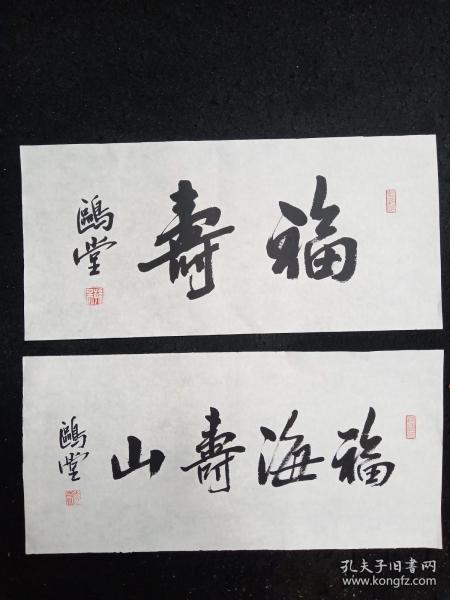 福壽
鷗堂
福海壽山
鷗堂
孔夫子旧书网
www.kongfz.com